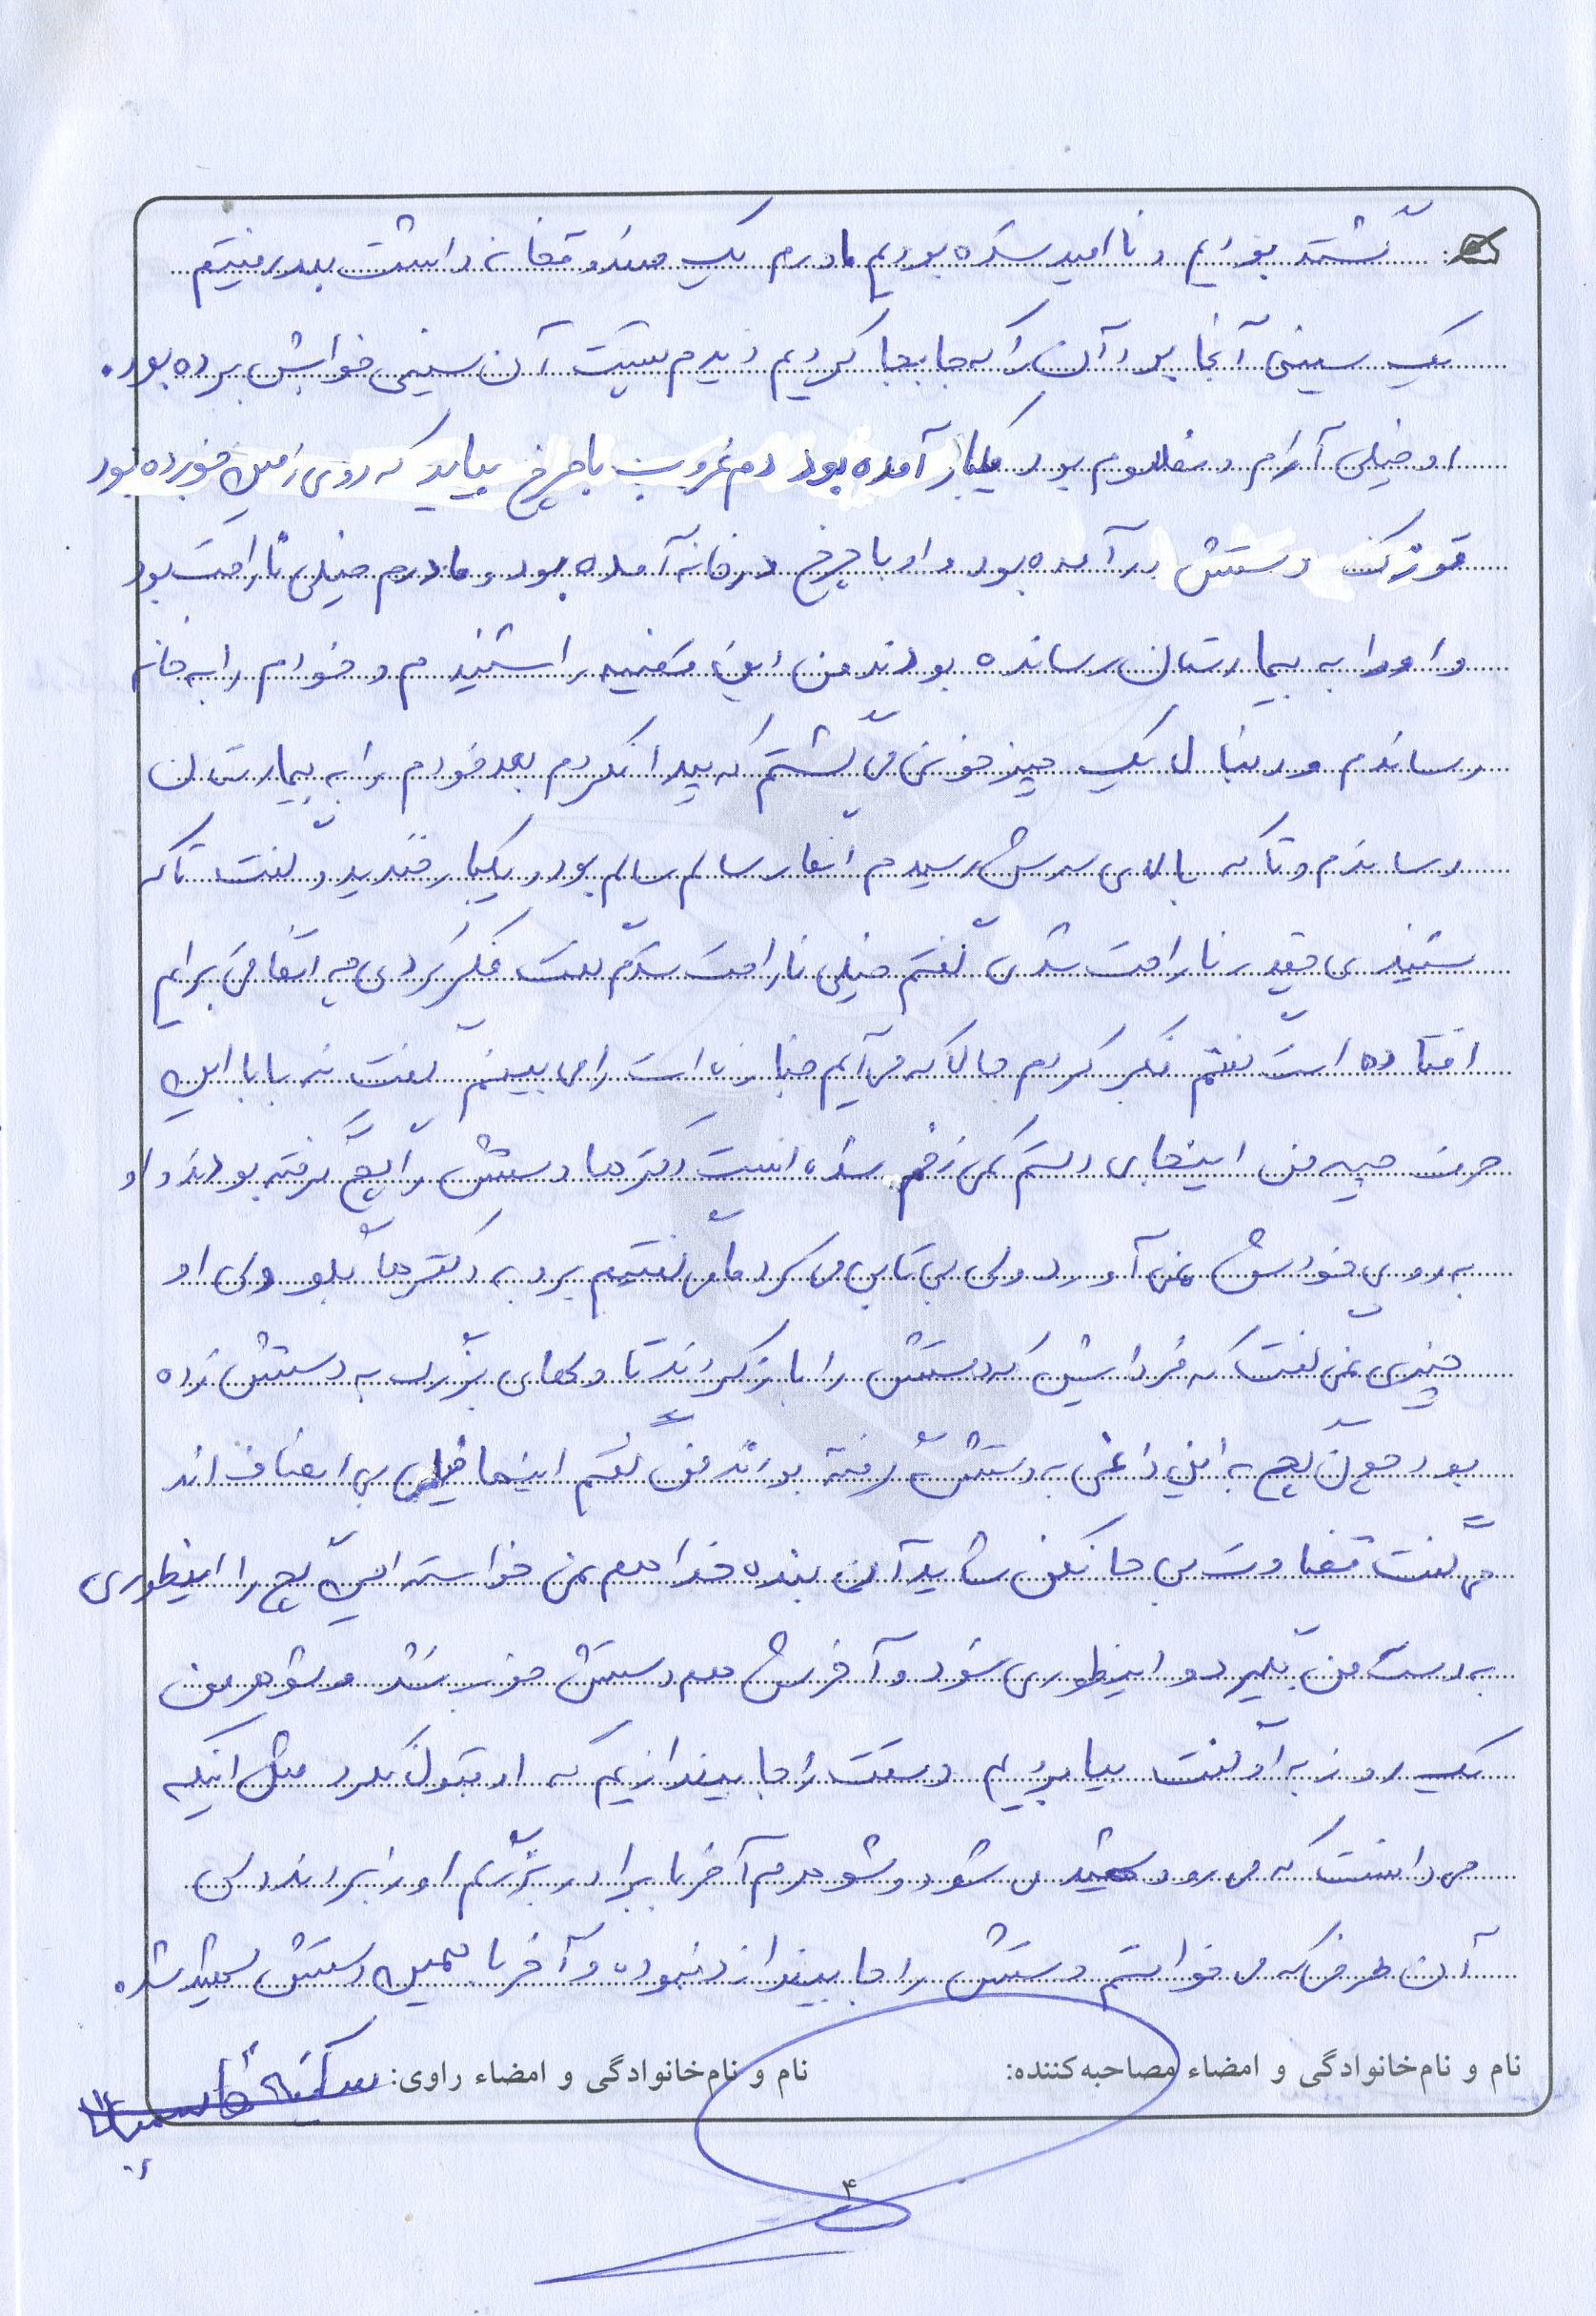 گشته بودیم و ناامید شده بودیم مادرم یک صندوقخانه داشت بعد رفتیم
یک سینی آنجا بود آن را که جابجا کردیم دیدم پشت آن سینی خوابش برده بود.
او خیلی آرام و مظلوم بود یکبار آمده بود دم غروب با چرخ بیاید که روی زمین خورده بود
قوزک دستش درآمده بود و او با چرخ در خانه آمده بود و مادرم خیلی ناراحت بود
و او را به بیمارستان رسانده بودند من این قضیه را شنیدم و خودم را به خانه
رساندم و دنبال یک چیز خونی می گشتم که پیدا نکردم بعد خودم را به بیمارستان
رساندم و تا که بالای سرش رسیدم انگار سالم سالم بود و یکبار خندید و گفت تا که
شنیدی چقدر ناراحت شدی گفتم خیلی ناراحت شدم گفت فکر کردی چه اتفاقی برایم
افتاده است گفتم فکر کردم حالا که می آیم جنازه ات را می بینم گفت نه بابا این
حرف چیه من اینجای دستم کمی زخم شده است دکترها دستش را گچ گرفته بودند و او
به روی خودش نمی آورد ولی بی تابی می کرد ما می گفتیم برو به دکترها بگو ولی او
چیزی نمی گفت که فردایش که دستش را باز کردند تاولهای بزرگ به دستش زده
بود چون گچ به این داغی به دستش گرفته بودند من گفتم اینها خیلی بی انصاف اند
می گفت قضاوت بی جا نکن شاید آن بنده خدا هم نمی خواسته این گچ را اینطوری
به دست من بگیرد و اینطوری شود و آخرش هم دستش خوب نشد و شوهر من
یک روز به او گفت بیا برویم دستت را جا بیندازیم که او قبول نکرد مثل اینکه
می دانست که می رود شهید می شود و شوهرم آخر با برادر بزرگم او را بردند ولی
آن طرف که می خواستم دستش را جا بیندازد نبوده و آخر با همین دستش شهید شد.
نام و نام‌خانوادگی و امضاء مصاحبه‌کننده: نام و نام‌خانوادگی و امضاء راوی: سکینه
۴